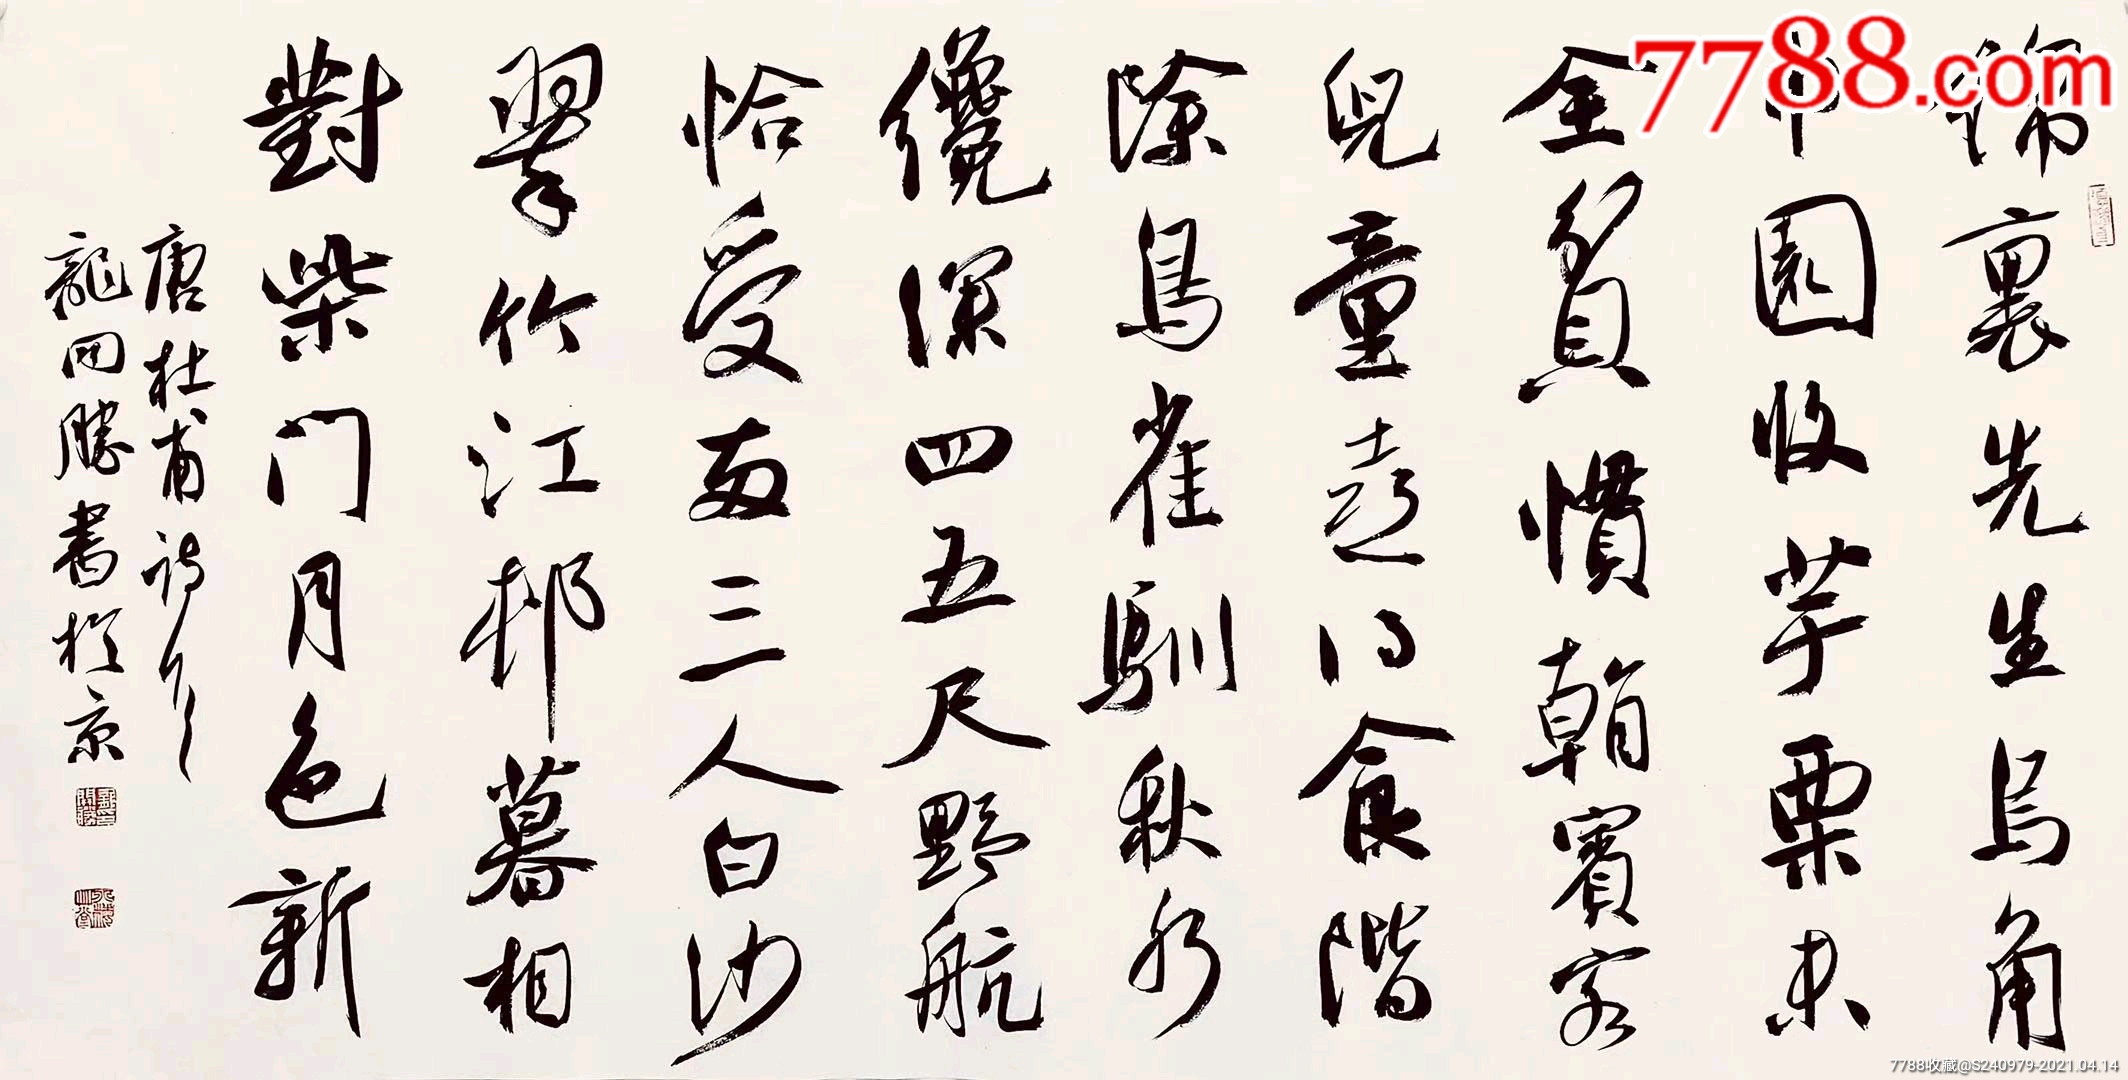 錦裏先生烏角
巾園收芋栗未
全貧慣看賓客
兒童喜得食階
除鳥雀馴秋水
纔深四五尺野航
恰受两三人白沙
翠竹江邨暮相
對柴门月色新
唐杜甫詩
龍開勝書於京
7788.com
7788收藏@S240979-2021.04.14